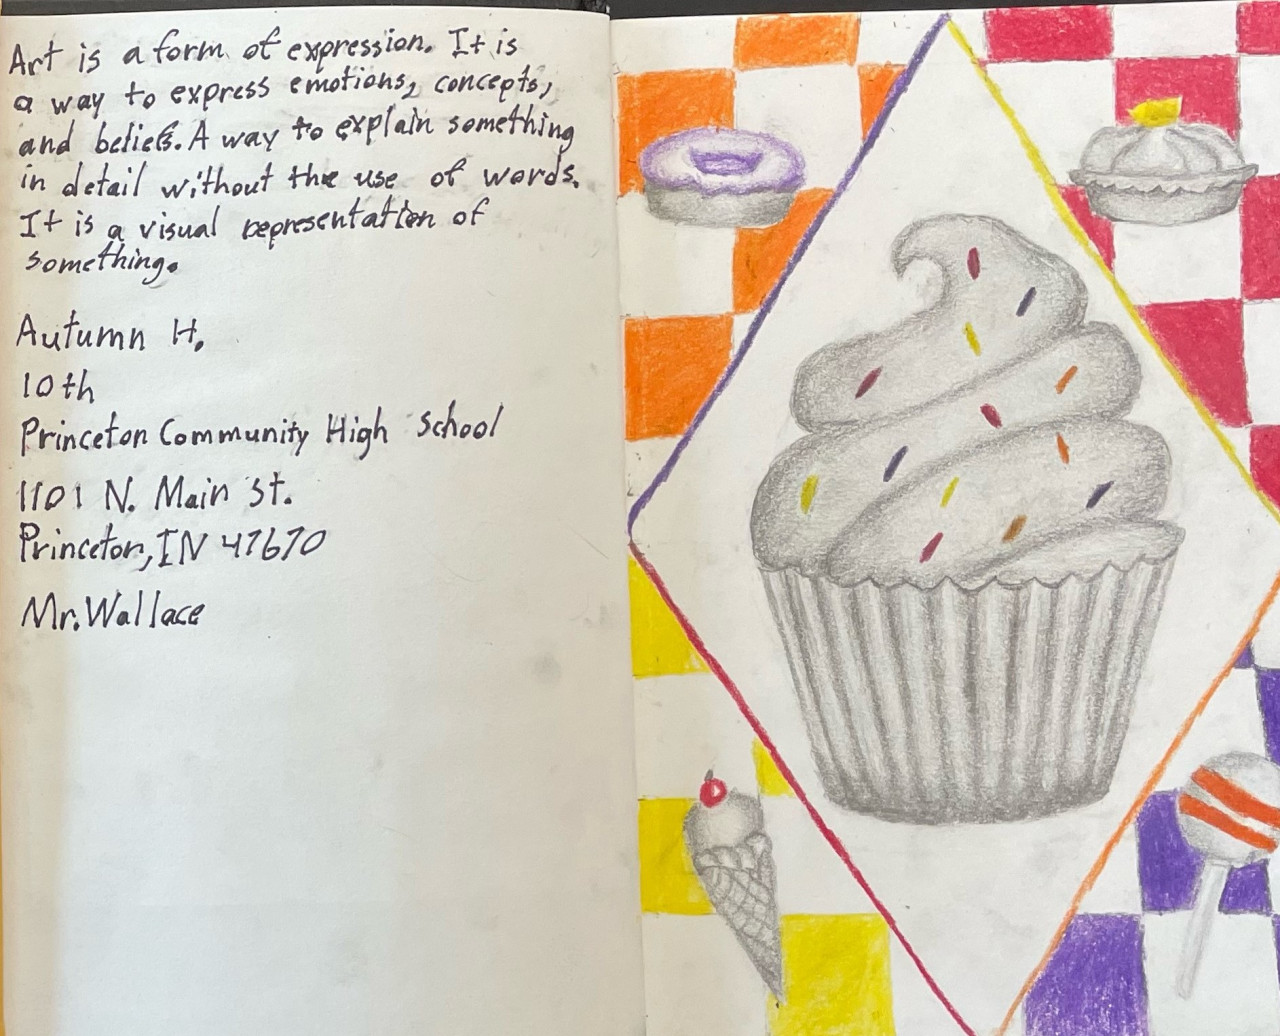 Art is a form of expression. It is
a way to express emotions, concepts,
and beliefs. A way to explain something
in detail without the use of words.
It is a visual representation of
something.
Autumn H.
10th
Princeton Community High School
1101 N. Main St.
Princeton, IN 47670
Mr. Wallace